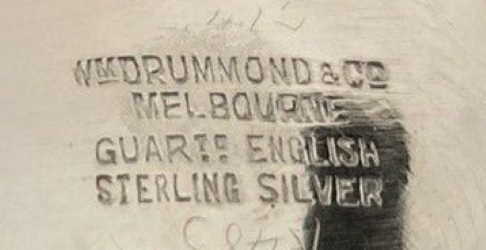 Wm DRUMMOND & Co
MELBOURNE
GUARTD ENGLISH
STERLING SILVER